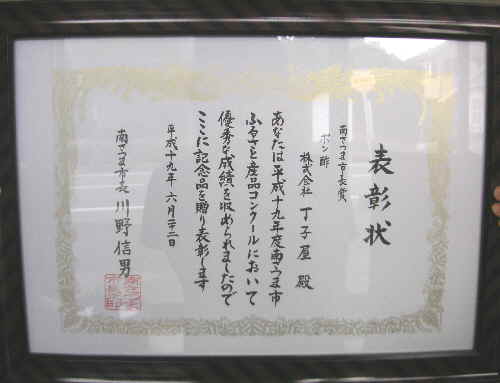 表彰状
南さつま市長賞
ポン酢
株式会社 丁子屋 殿
あなたは平成十九年度南さつま市
ふるさと産品コンクールにおいて
優秀な成績を収められましたので
ここに記念品を贈り表彰します
平成十九年六月二十二日
南さつま市長 川野信男